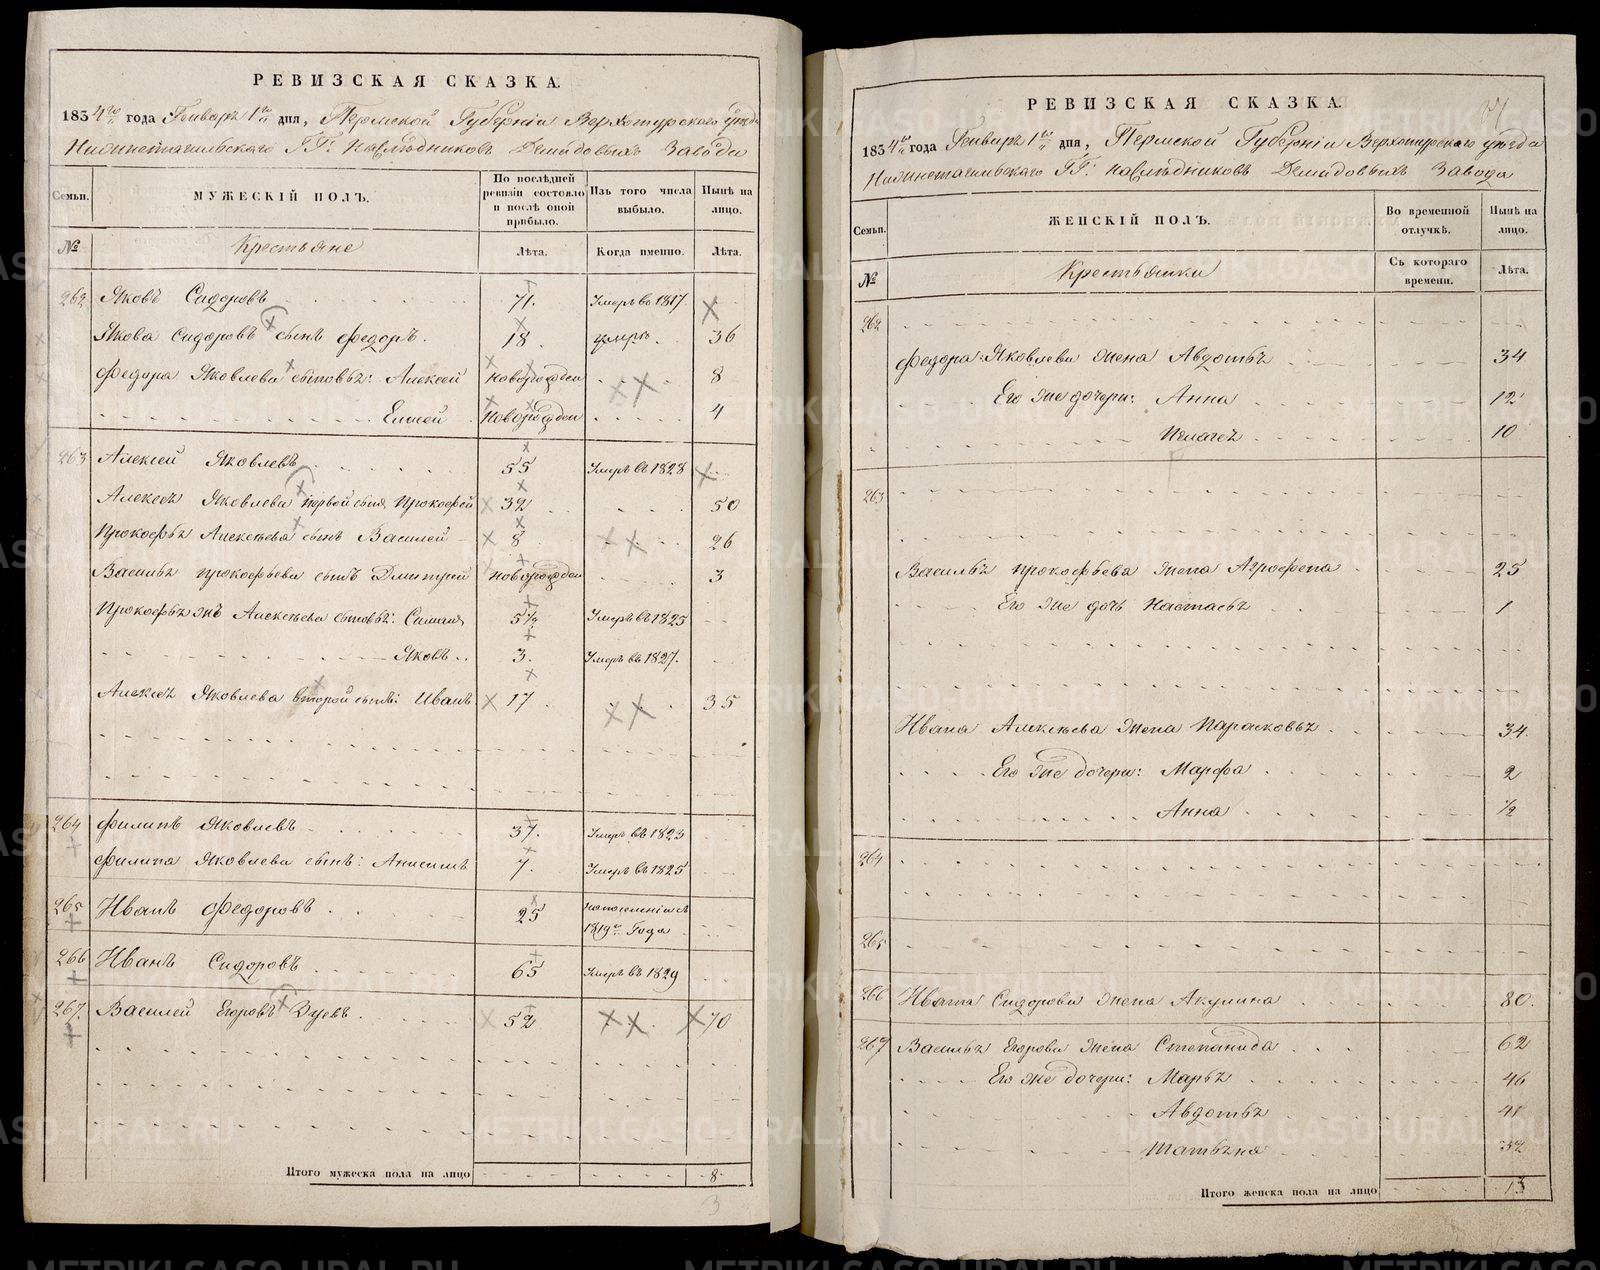 РЕВИЗСКАЯ СКАЗКА.
1834го года Генваря 1го дня, Пермской Губерніи Верхотурского уезда
Нижнетагильского ГГ. наследниковъ Демидовыхъ Завода
Семьи. МУЖЕСКІЙ ПОЛЪ. По послѣдней ревизіи состояло и послѣ оной прибыло. Изъ того числа выбыло. Нынѣ на лицо.
№ Крестьяне Лѣта. Когда именно. Лѣта.
262 Яковъ Сидоровъ 71. Умеръ въ 1817
Якова Сидоровъ сынъ Федоръ. 18 36
Федора Яковлева сыновья: Алексей Новорожден 8
Елисей Новорожден 4
263 Алексей Яковлевъ 55 Умеръ въ 1828
Алексея Яковлева первой сынъ Прокофей 32 50
Прокофья Алексеева сынъ Василей 8 26
Василья Прокофьева сынъ Дмитрий Новорожден 3
Прокофья жъ Алексеева сыновья: Симион 5½ Умеръ въ 1825
Яковъ 3. Умеръ въ 1827.
Алексея Яковлева второй сынъ: Иванъ 17 35
264 Филипъ Яковлевъ 37. Умеръ въ 1823
Филипа Яковлева сынъ: Анисимъ 7. Умеръ въ 1825
265 Иванъ Федоровъ 25 на поселеніи съ 1819го Года
266 Иванъ Сидоровъ 65 Умеръ въ 1829
267. Василей Егоровъ Зуевъ 52 70
Итого мужеска пола на лицо 8
3
РЕВИЗСКАЯ СКАЗКА.
1834го года Генваря 1го дня, Пермской Губерніи Верхотурского уезда
Нижнетагильского ГГ. наследниковъ Демидовыхъ Завода
Семьи. ЖЕНСКІЙ ПОЛЪ. Во временной отлучкѣ. Нынѣ на лицо.
№ Крестьянки Съ котораго времени. Лѣта.
262
Федора Яковлева жена Авдотья 34
Его же дочери: Анна 12
Пелагея 10
263
Василья Прокофьева жена Агрофена 25
Его же дочь Настасья 1
Ивана Алексеева жена Парасковья 34.
Его же дочери: Марфа 2
Анна ½
264
265
266 Ивана Сидорова жена Акулина 80.
267 Василья Егорова жена Степанида 62
Его же дочери: Марья 46
Авдотья 41
Татьяна 32
Итого женска пола на лицо 13
METRIKI.GASO-URAL.RU